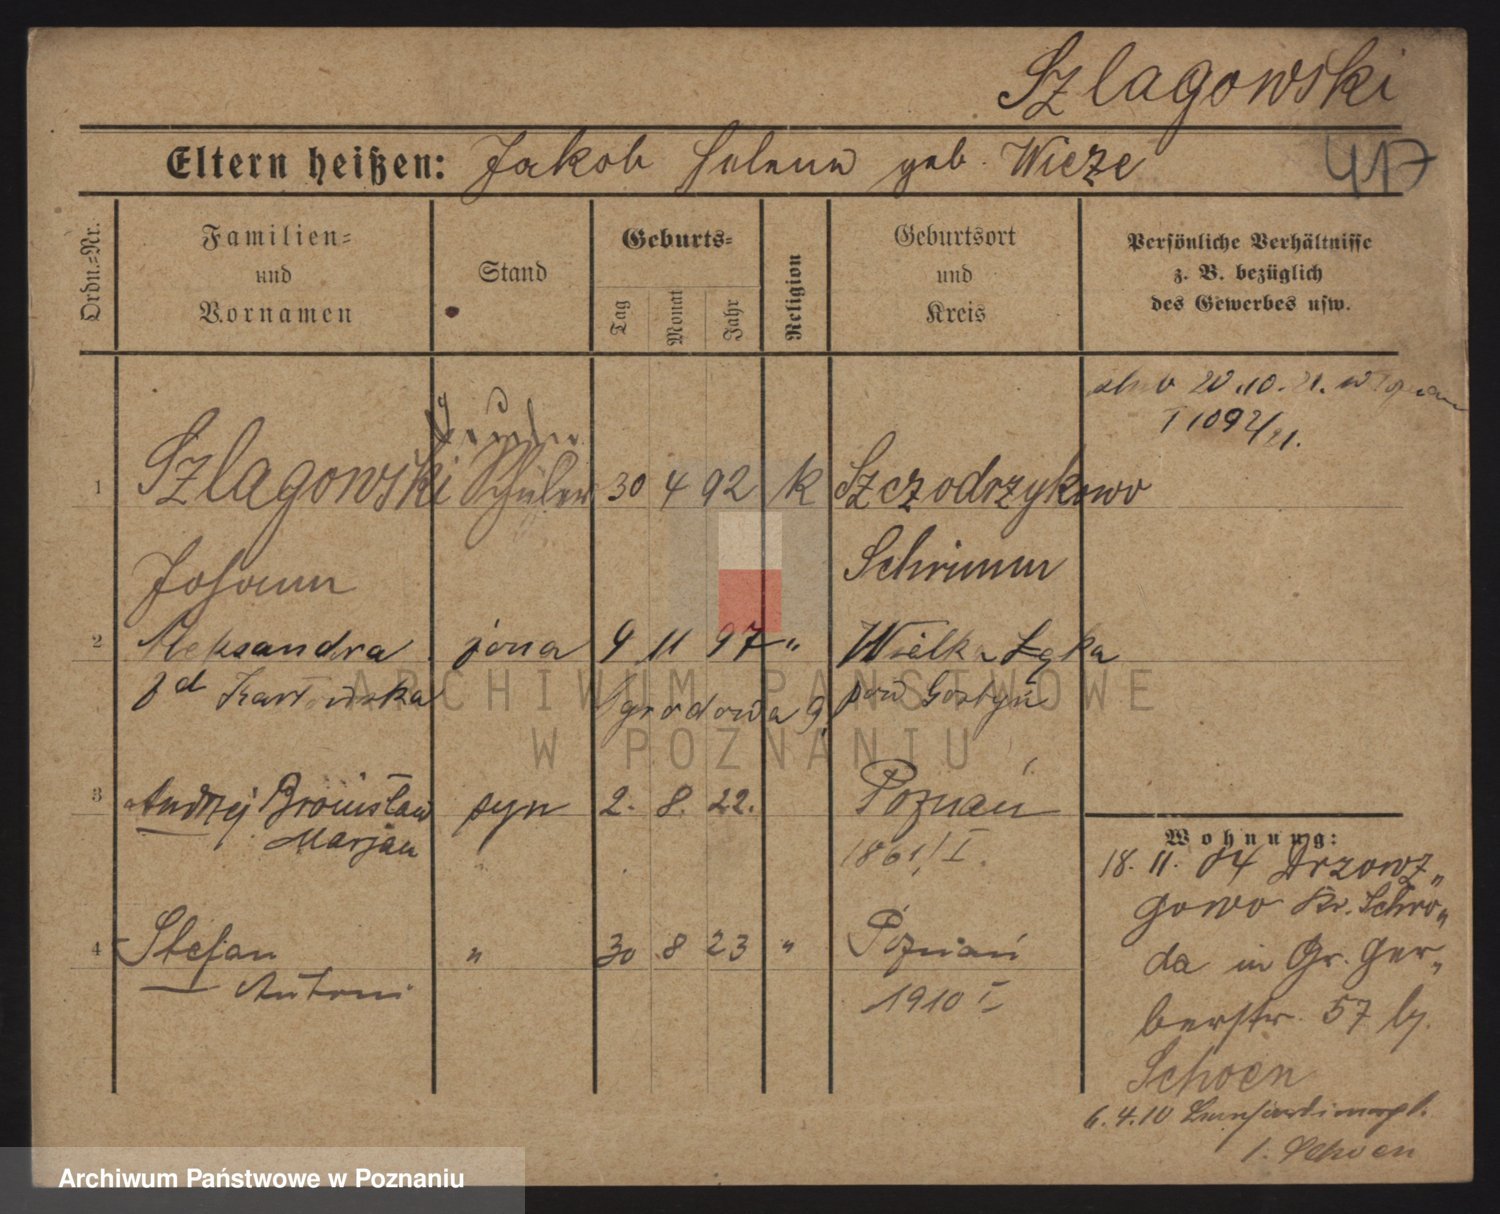 Szlagowski
Eltern heißen: Jakob Helena geb. Wieze
417
Ordn.=Nr.
Familien=
und
Vornamen
Stand
Geburts=
Tag
Monat
Jahr
Religion
Geburtsort
und
Kreis
Persönliche Verhältnisse
z. B. bezüglich
des Gewerbes usw.
20.10.21. w
T 1092/21.
1 Szlagowski Schüler 30 4 92 k Szczodrzykowo
Johann Schrimm
2 Aleksandra żona 9 11 97 " Wielka Łęka
zd Ogrodowa 9 pow Gostyń
3 Andrzej Bronisław syn 2. 8. 22. Poznań
Marjan 1861/I.
4 Stefan " 30 8 23 " Poznań
Antoni 1910 I
Wohnung:
18. 11. 04 Drzonz„
gowo Kr. Schro„
da in Gr. Ger„
berstr. 57 by.
Schoen
6.4.10
b. Schoen
ARCHIWUM PAŃSTWOWE
W POZNANIU
Archiwum Państwowe w Poznaniu